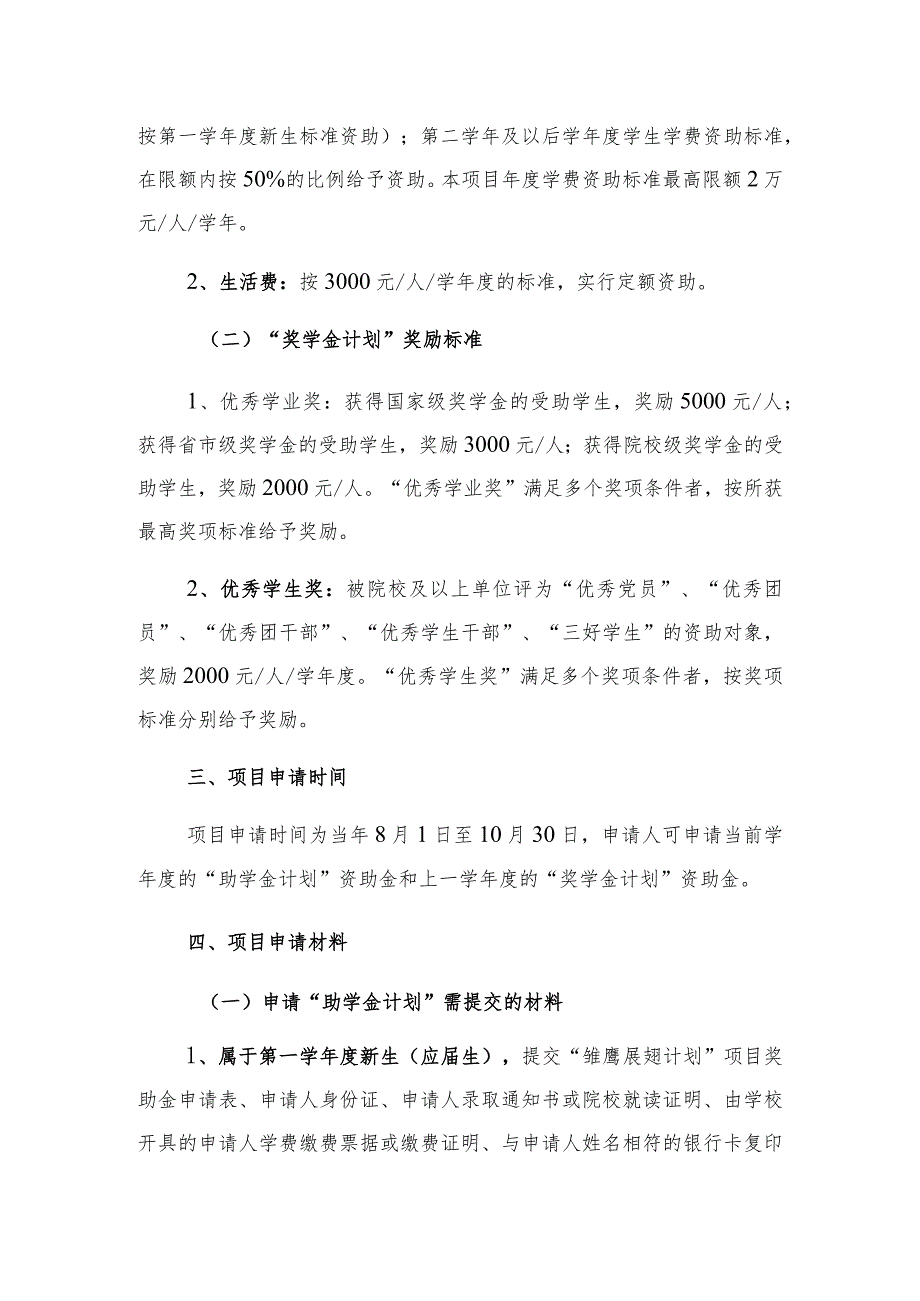 按第一学年度新生标准资助）；第二学年及以后学年度学生学费资助标准，
在限额内按 50%的比例给予资助。本项目年度学费资助标准最高限额 2 万
元/人/学年。
2、生活费：按 3000 元/人/学年度的标准，实行定额资助。
（二）“奖学金计划”奖励标准
1、优秀学业奖：获得国家级奖学金的受助学生，奖励 5000 元/人；
获得省市级奖学金的受助学生，奖励 3000 元/人；获得院校级奖学金的受
助学生，奖励 2000 元/人。“优秀学业奖”满足多个奖项条件者，按所获
最高奖项标准给予奖励。
2、优秀学生奖：被院校及以上单位评为“优秀党员”、“优秀团
员”、“优秀团干部”、“优秀学生干部”、“三好学生”的资助对象，
奖励 2000 元/人/学年度。“优秀学生奖”满足多个奖项条件者，按奖项
标准分别给予奖励。
三、项目申请时间
项目申请时间为当年 8 月 1 日至 10 月 30 日，申请人可申请当前学
年度的“助学金计划”资助金和上一学年度的“奖学金计划”资助金。
四、项目申请材料
（一）申请“助学金计划”需提交的材料
1、属于第一学年度新生（应届生），提交“雏鹰展翅计划”项目奖
助金申请表、申请人身份证、申请人录取通知书或院校就读证明、由学校
开具的申请人学费缴费票据或缴费证明、与申请人姓名相符的银行卡复印